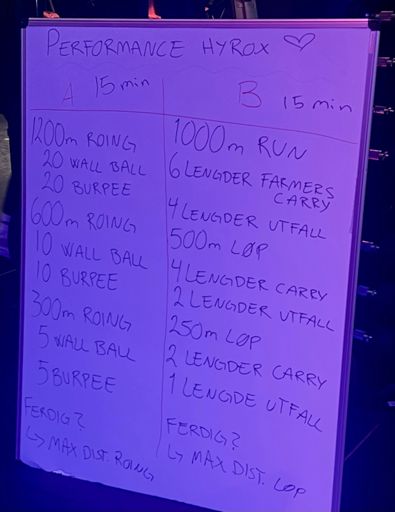 PERFORMANCE HYROX ♡
A 15 min
1200m ROING
20 WALL BALL
20 BURPEE
600m ROING
10 WALL BALL
10 BURPEE
300m ROING
5 WALL BALL
5 BURPEE
FERDIG?
↳ MAX DIST. ROING
B 15 min
1000m RUN
6 LENGDER FARMERS
CARRY
4 LENGDER UTFALL
500m LØP
4 LENGDER CARRY
2 LENGDER UTFALL
250m LØP
2 LENGDER CARRY
1 LENGDE UTFALL
FERDIG?
↳ MAX DIST. LØP